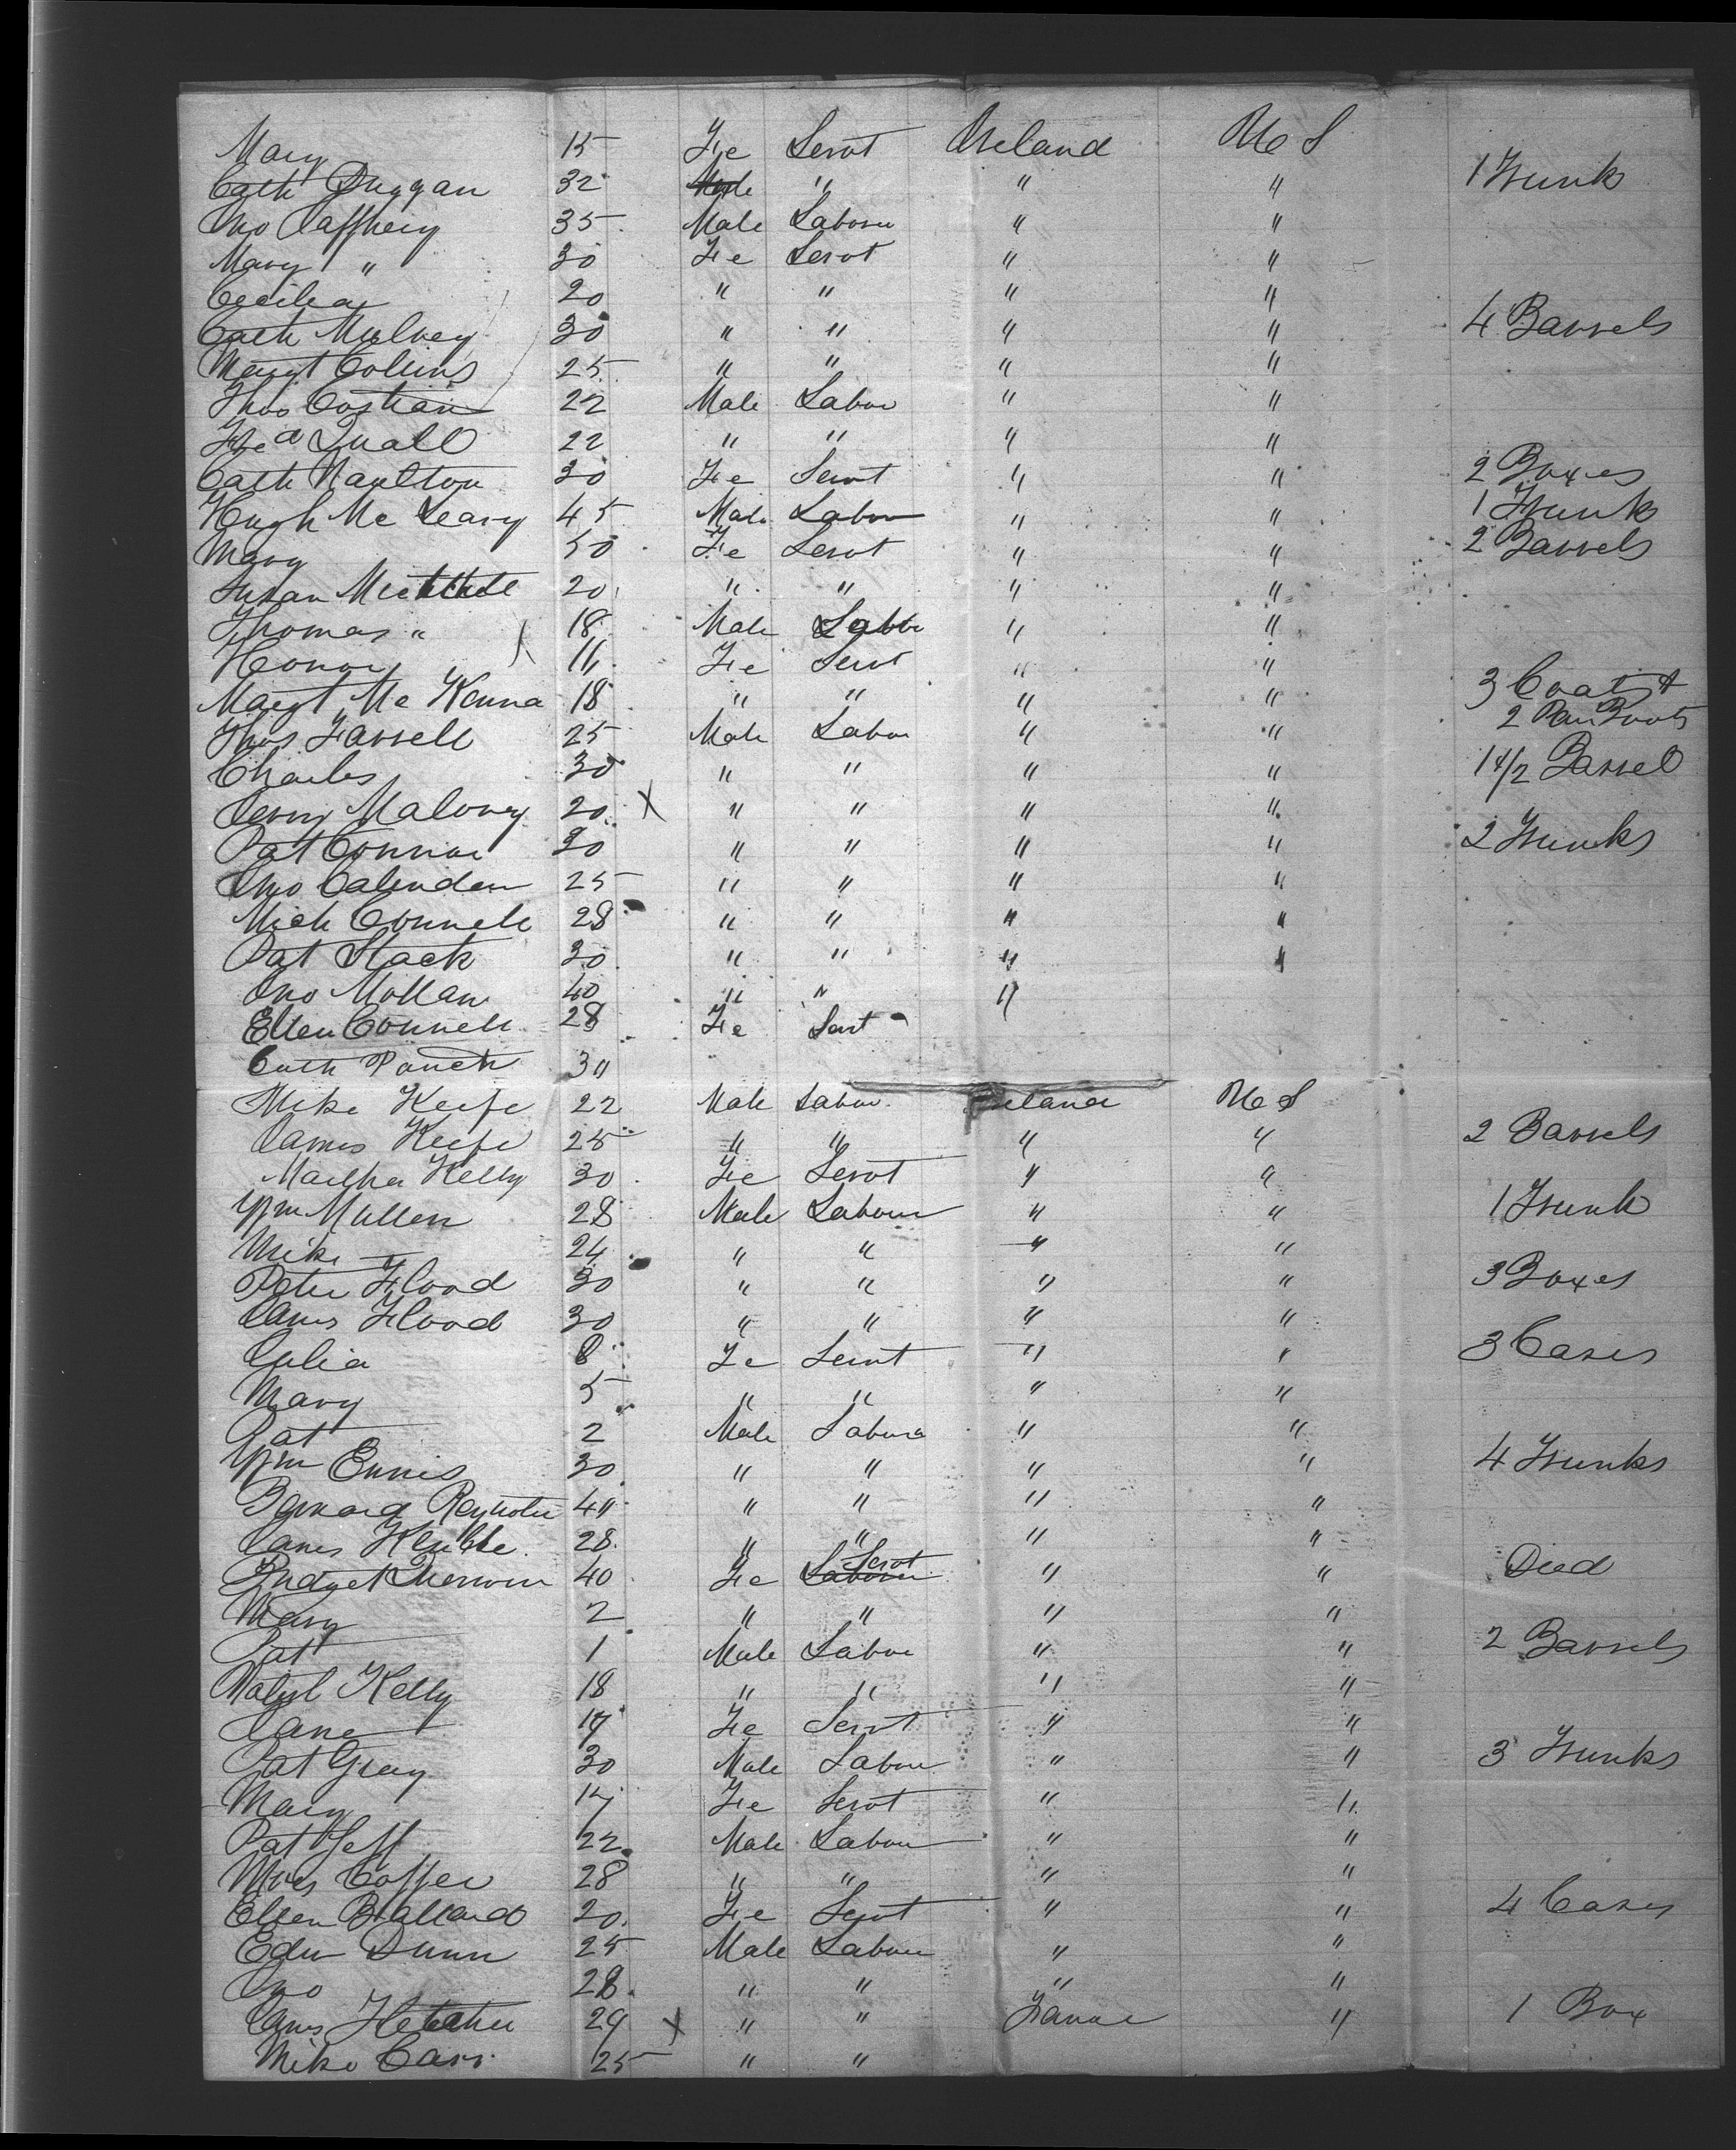 Mary 15 Fe Servt Ireland U S
Cath Duggan 32 " " " 1 Trunk
Jno Caffrey 35 Male Labour " "
Mary " 30 Fe Servt " "
Cecilia 20 " " " "
Cath Mulvey 30 " " " " 4 Barrels
Margt Collins 25 " " " "
Thos Costian 22 Male Labor " "
22 " " " "
Cath 30 Fe Servt " " 2 Boxes
Hugh Mc Leary 45 Male Labor " " 1 Trunk
Mary 50 Fe Servt " " 2 Barrels
Susan 20 " " " "
Thomas " 18 Male Labor " "
Honor 11 Fe Servt " "
Margt Mc Kenna 18 " " " " 3 Coats &
2 Pair Boots
Thos Farrell 25 Male Labor " "
Charles 30 " " " " 1 1/2 Barrel
Jerry Maloney 20 X " " " "
Pat Connor 30 " " " " 2 Trunks
Jno 25 " " " "
Mich Connell 28 " " " "
Pat Stack 30 " " " "
Jno 40 " " "
Ellen Connell 28 Fe Servt
Cath 30
Mike Keefe 22 Male Labour Ireland U S
James Keefe 25 " " " " 2 Barrels
Martha Kelly 30 Fe Servt " "
Wm Mullen 28 Male Labour " " 1 Trunk
Mike 24 " " " "
Peter Flood 30 " " " " 3 Boxes
James Flood 30 " " " "
Julia 8 Fe Servt " " 3 Cases
Mary 5 " " " "
Pat 2 Male Labour " "
Wm Ennis 30 " " " " 4 Trunks
Bernard 40 " " " "
James 28 " " " "
Bridget 40 Fe Servt " " Died
Mary 2 " " " "
Pat 1 Male Labor " " 2 Barrels
Kelly 18 " " " "
Jane 17 Fe Servt " "
Pat Gray 30 Male Labour " " 3 Trunks
Mary 17 Fe Servt " "
Pat 22 Male Labour " "
28 " " " "
Ellen Ballard 20 Fe Servt " " 4 Cases
Edw Dunn 25 Male Labour " "
Jno 28 " " " "
James Fletcher 29 X " " " 1 Box
Mike Carr 25 " "